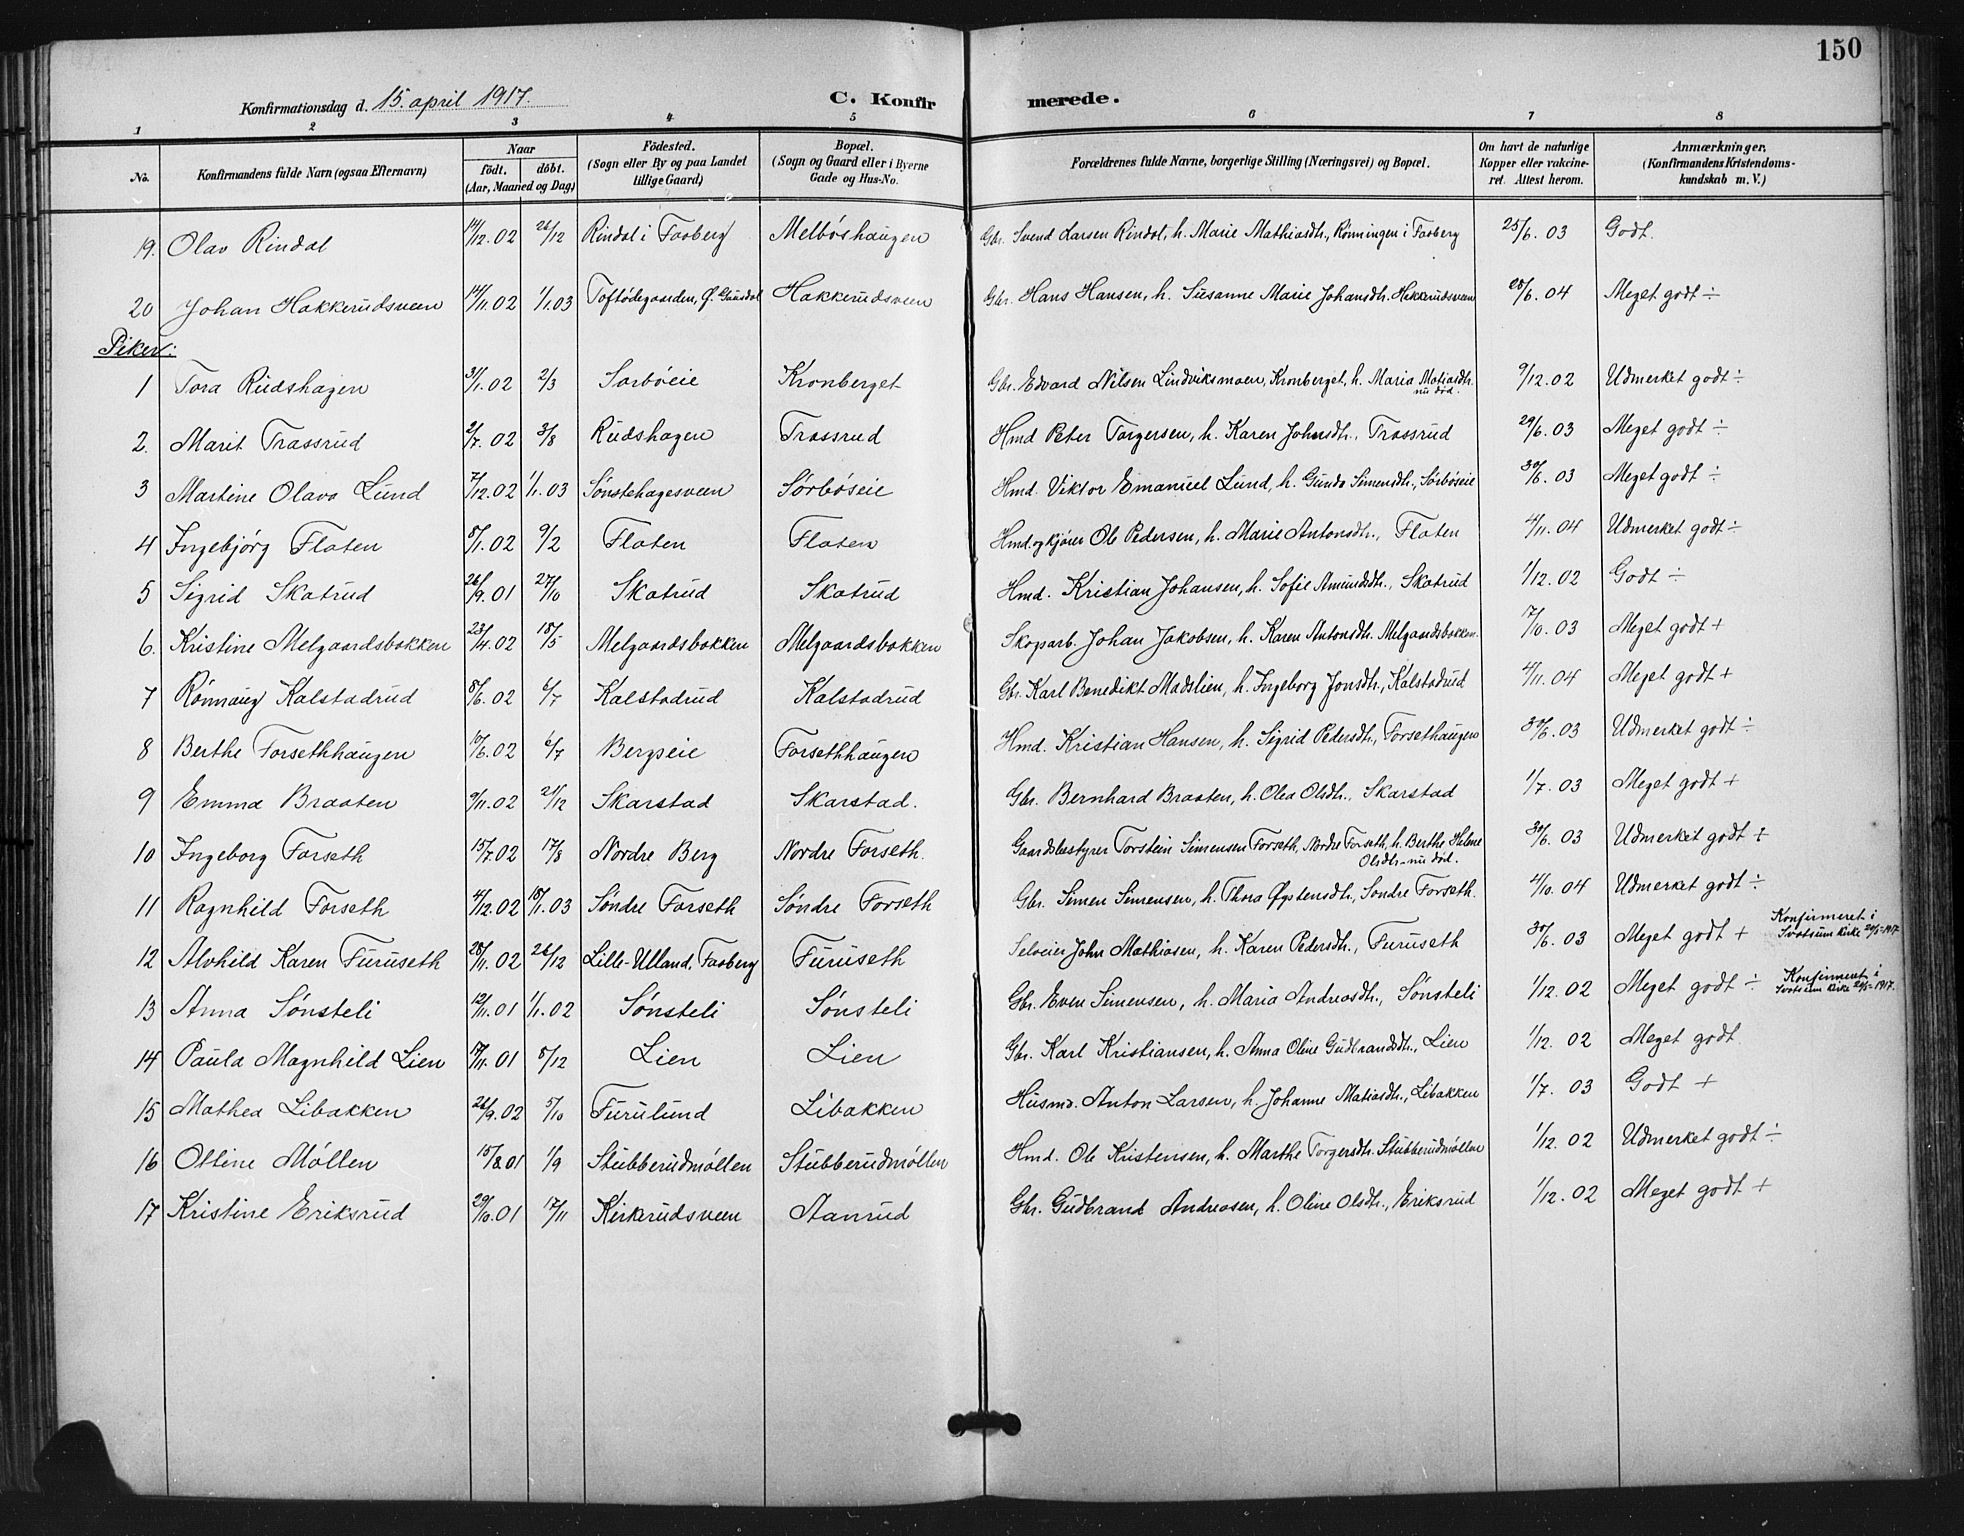 150
Konfirmationsdag d. 15. april 1917. C. Konfirmerede.
1 2 3 4 5 6 7 8
No. Konfirmandens fulde Narn (ogsaa Efternavn) Naar födt. döbt. (Aar, Maaned og Dag) Födested. (Sogn eller By og paa Landet tillige Gaard) Bopæl. (Sogn og Gaard eller i Byerne Gade og Hus-No. Forældrenes fulde Navne, borgerlige Stilling (Næringsvei) og Bopæl. Om havt de naturlige Kopper eller vakcineret. Attest herom. Anmærkninger, (Konfirmandens Kristendomskundskab m. V.)
19. Olav Rindal 14/12.02 26/12 Rindal i Faaberg Melböshaugen Gbr. Svend Larsen Rindal, h. Marie Mathiasdtr., Rönningen i Faaberg 25/6.03 Godt.
20 Johan Hakkerudsveen 14/11.02 1/1.03 Toftödegaarden, Ø. Gausdal Hakkerudsveen Gbr. Hans Hansen, h. Susanne Marie Johansdtr. Hakkerudsveen 28/6.04 Meget godt ÷
Piker:
1 Tora Rudshagen 31/1.02 2/3 Sörböeie Kronberget Gbr. Edvard Nilsen Lindviksmoen, Kronberget, h. Maria Matiasdtr. nu död. 9/12.02 Udmerket godt ÷
2. Marit Trassrud 2/7.02 3/8 Rudshagen Trassrud Hmd Peter Torgersen, h. Karen Johnsdtr., Trassrud 29/6.03 Meget godt ÷
3 Martine Olava Lund 7/12.02 1/1.03 Sönstehagesveen Sörböseie Hmd. Viktor Emanuel Lund, h. Gunda Simensdtr., Sörböseie 30/6.03 Meget godt ÷
4 Ingebjörg Flaten 8/1.02 9/2 Flaten Flaten Hmd. og kjörer Ole Pedersen, h. Marie Antonsdtr., Flaten 4/11.04 Udmerket godt ÷
5 Sigrid Skatrud 26/9.01 27/10 Skatrud Skatrud Hmd. Kristian Johansen, h. Sofie Amundsdtr., Skatrud 1/12.02 Godt ÷
6. Kristine Melgaardsbakken 23/4.02 18/5 Melgaardsbakken Melgaardsbakken Skoparb. Johan Jakobsen, h. Karen Antonsdtr. Melgaardsbakken. 7/10.03 Meget godt +
7 Rönnaug Kalstadrud 8/6.02 6/7 Kalstadrud Kalstadrud Gbr. Karl Benedikt Madslien, h. Ingeborg Jonsdtr., Kalstadrud 4/11.04 Meget godt +
8 Berthe Forsethhaugen 10/6.02 6/7 Bergseie Forsethhaugen Hmd. Kristian Hansen, h. Sigrid Pedersdtr., Forsethaugen 30/6.03 Udmerket godt ÷
9 Emma Braaten 9/11.02 21/12 Skarstad Skarstad. Gbr. Bernhard Braaten, h. Olea Olsdtr., Skarstad 1/7.03 Meget godt +
10 Ingeborg Forseth 15/7.02 17/8 Nordre Berg Nordre Forseth. Gaardsbestyrer Torstein Simensen Forseth, Nordre Forseth, h. Berthe Helene Olsdtr. - nu död. 30/6.03 Udmerket godt +
11 Ragnhild Forseth 4/12.02 18/1.03 Söndre Forseth Söndre Forseth Gbr. Simen Simensen, h. Thora Øystensdtr., Söndre Forseth. 4/10.04 Udmerket godt ÷
12 Alvhild Karen Furuseth 28/11.02 26/12 Lille-Ulland, Faaberg Furuseth Selveier John Mathiasen, h. Karen Pedersdtr., Furuseth 30/6.03 Meget godt + Konfirmeret i Svatsum Kirke 20/5-1917.
13 Anna Sönsteli 12/11.01 1/1.02 Sönsteli Sönsteli Gbr. Even Simensen, h. Maria Andreasdtr., Sönsteli 1/12.02 Meget godt ÷ Konfirmeret i Svatsum Kirke 20/5-1917.
14 Paula Magnhild Lien 17/11.01 8/12 Lien Lien Gbr. Karl Kristiansen, h. Anna Oline Gudbrandsdtr., Lien 1/12.02 Meget godt.
15 Mathea Libakken 26/9.02 5/10 Furulund Libakken Husmd. Anton Larsen, h. Johanne Matiasdtr., Libakken 1/7.03 Godt +
16 Olline Möllen 15/8.01 1/9 Stubberudmöllen Stubberudmöllen Hmd. Ole Kristensen, h. Marthe Torgersdtr. Stubberudmöllen 1/12.02 Udmerket godt ÷
17 Kristine Eriksrud 29/10.01 17/11 Kirkerudsveen Aanrud Gbr. Gudbrand Andreasen, h. Oline Olsdtr., Eriksrud 1/12.02 Meget godt +